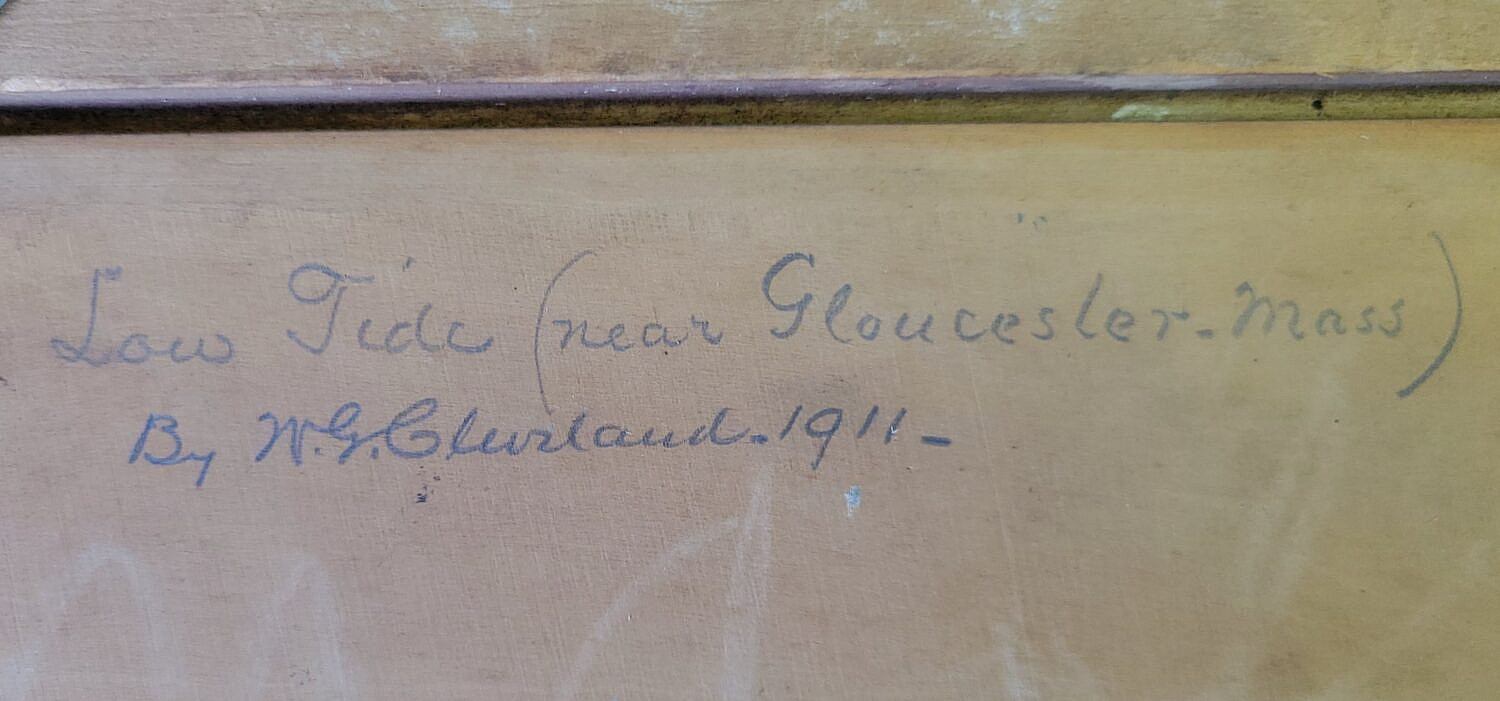 Low Tide (near Gloucester-Mass)
By W.G. Cleveland-1911-